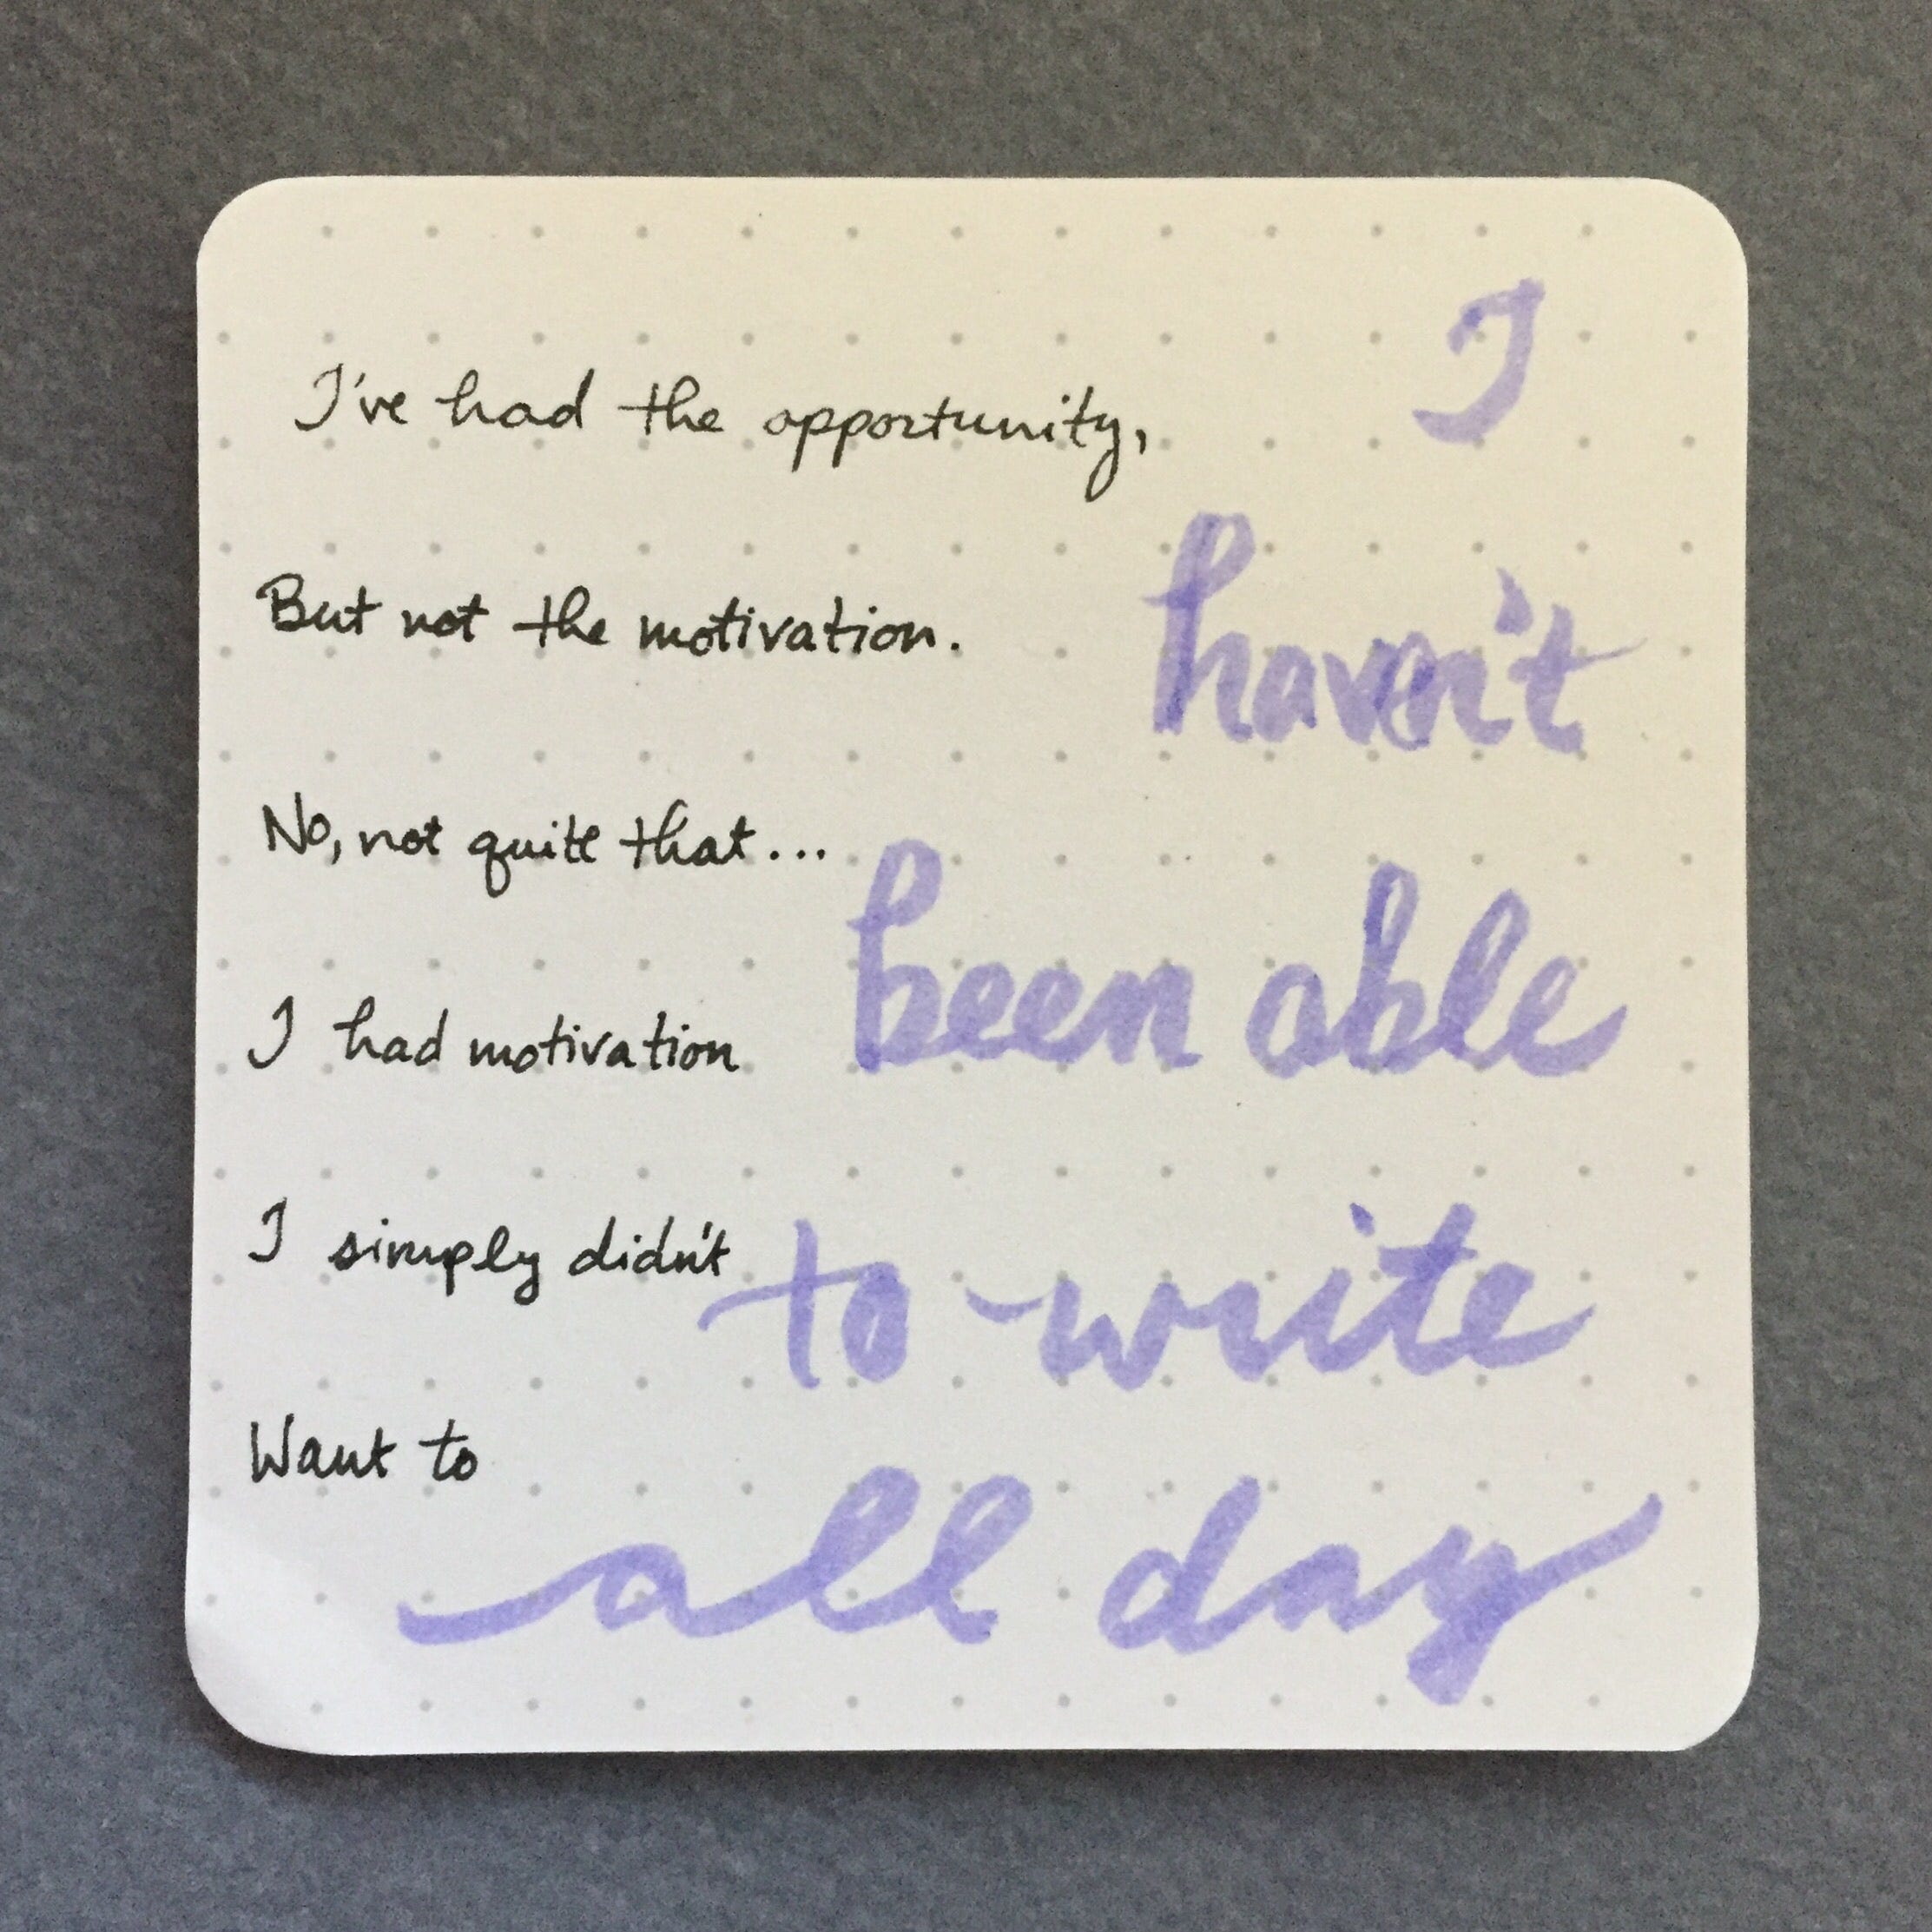 I've had the opportunity,
But not the motivation.
No, not quite that...
I had motivation
I simply didn't
Want to
I
haven't
been able
to write
all day